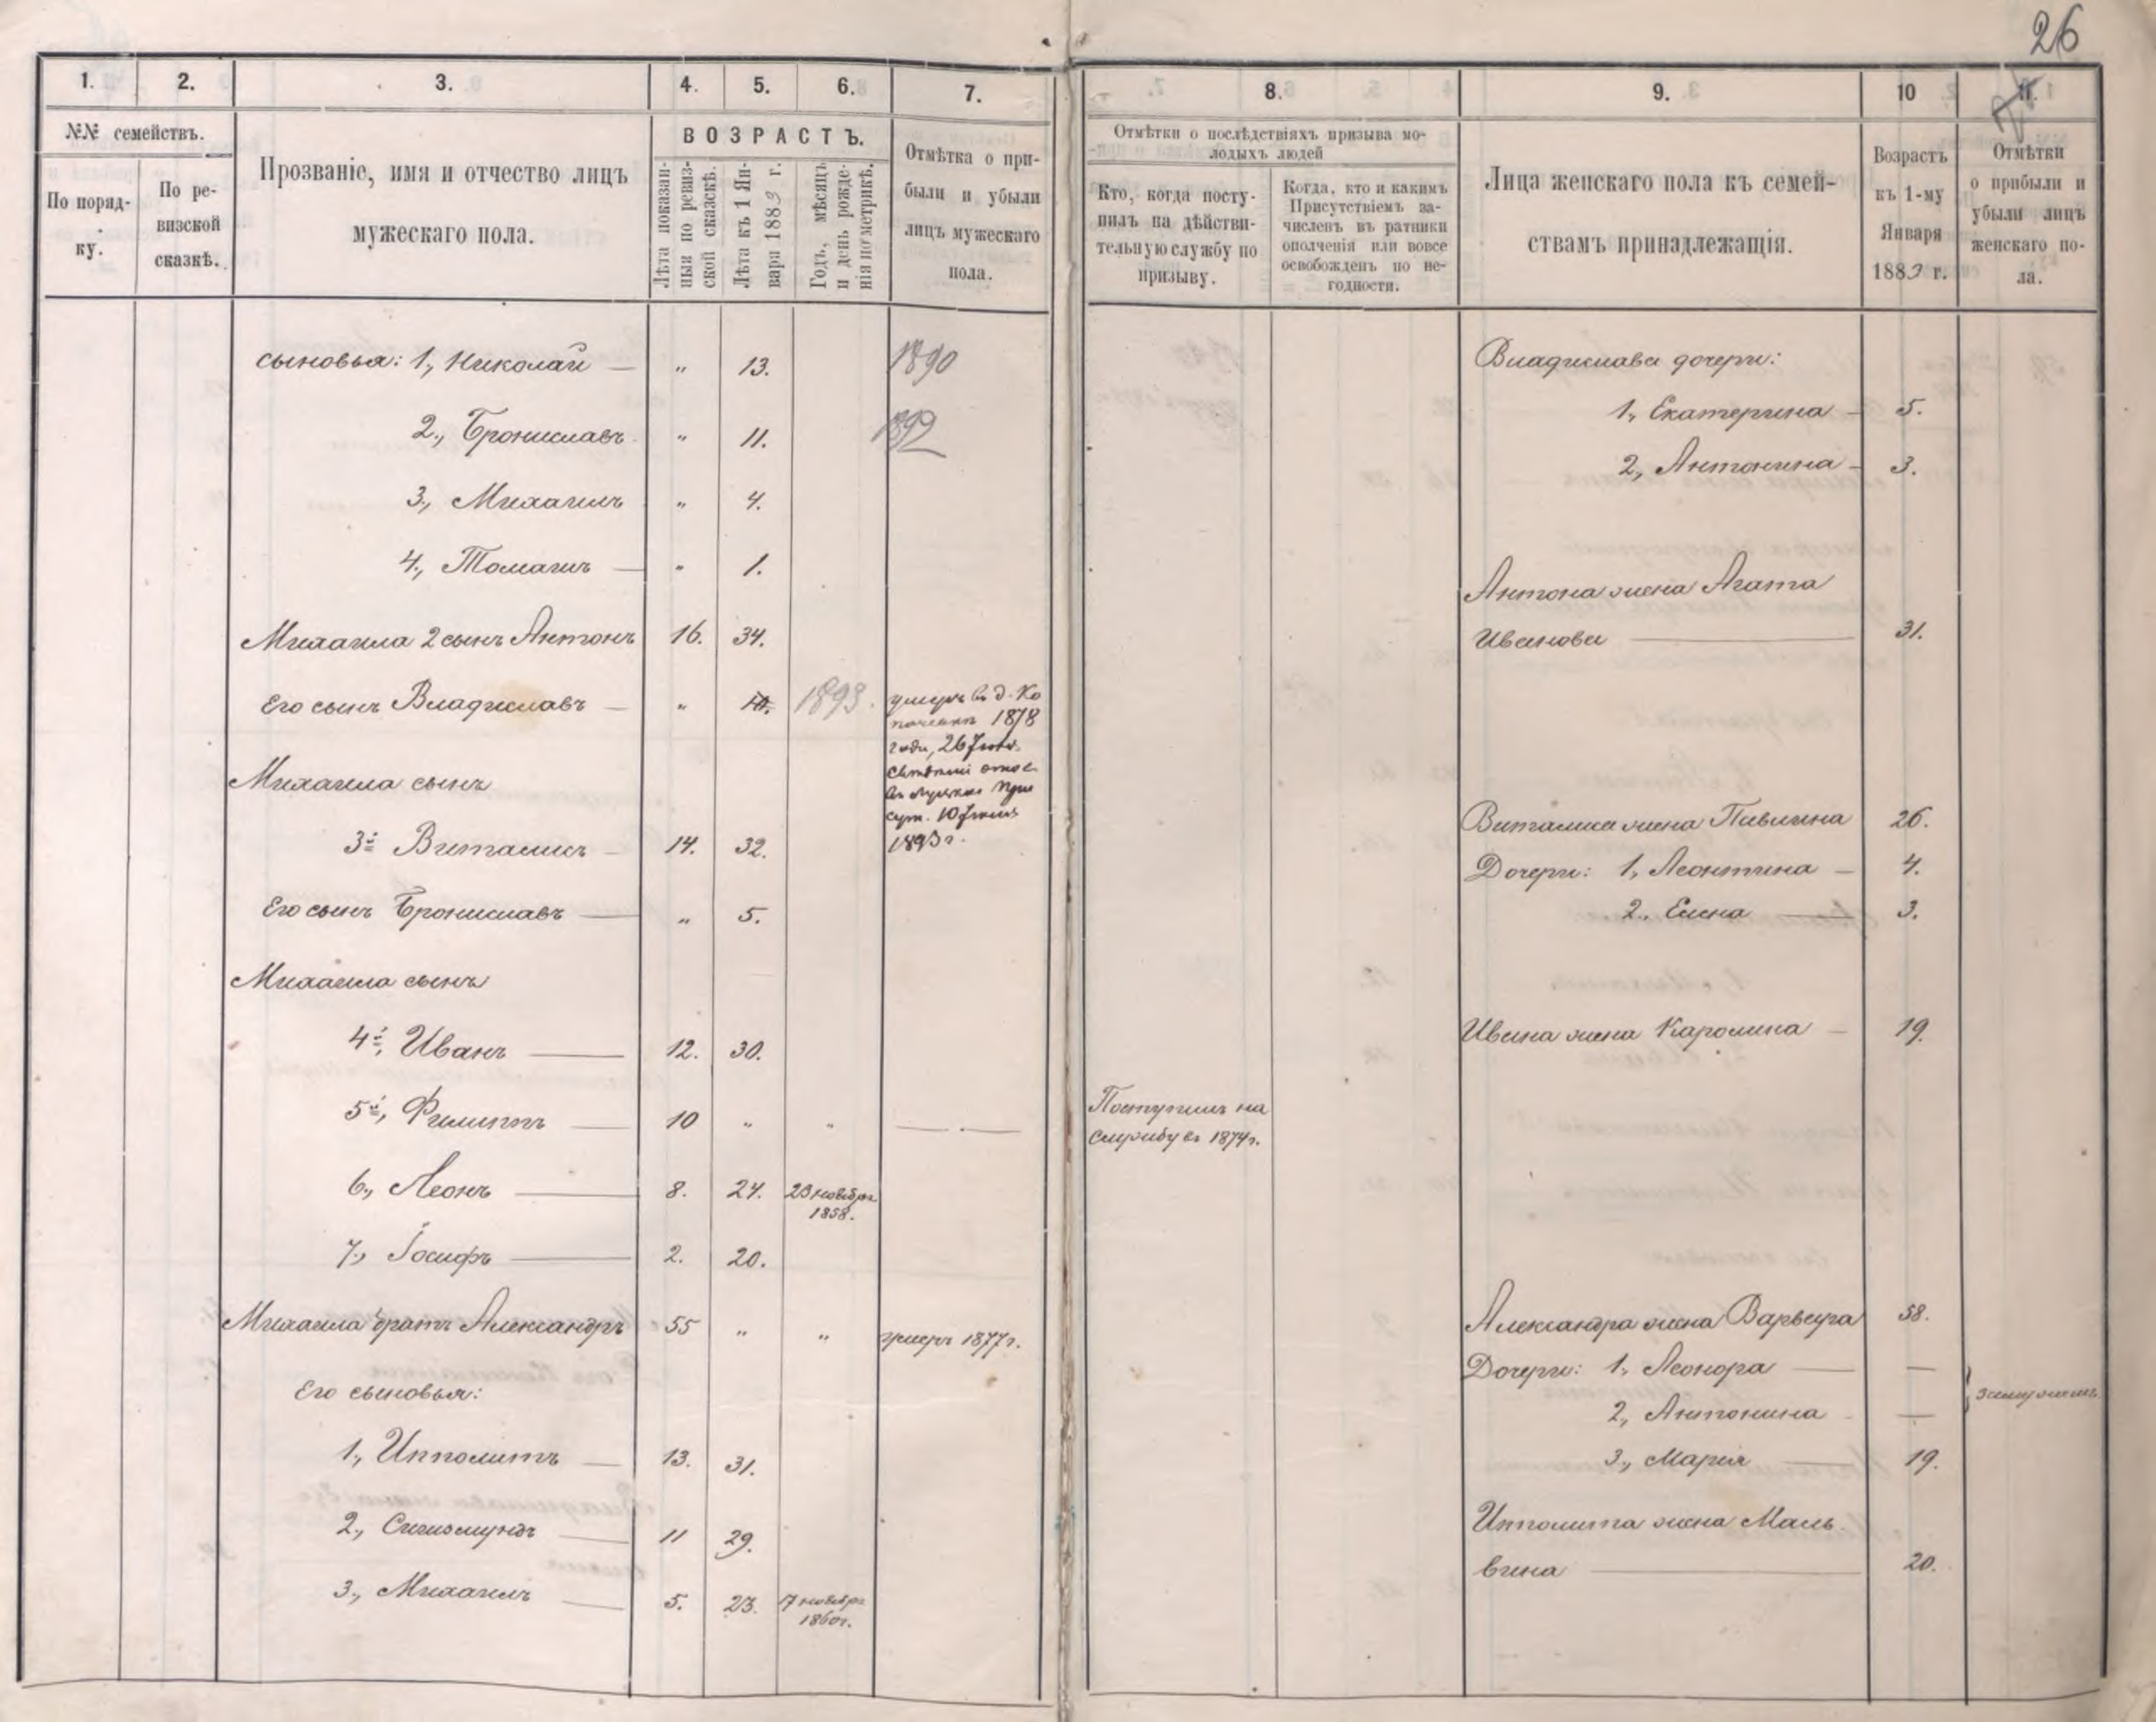 26
1.
2.
3.
4.
5.
6.
7.
8.
9.
10
11.
№№ семействъ.
По поряд-
ку.
По ре-
визской
сказкѣ.
Прозваніе, имя и отчество лицъ
мужескаго пола.
ВОЗРАСТЪ.
Лѣта показан-
ныя по ревиз-
ской сказскѣ.
Лѣта къ 1 Ян-
варя 1883 г.
Годъ, мѣсяцъ
и день рожде-
нія по метрикѣ.
Отмѣтка о при-
были и убыли
лицъ мужескаго
пола.
Отмѣтки о послѣдствіяхъ призыва мо-
лодыхъ людей
Кто, когда посту-
пилъ на дѣйстви-
тельную службу по
призыву.
Когда, кто и какимъ
Присутствіемъ за-
численъ въ ратники
ополченія или вовсе
освобожденъ по не-
годности.
Лица женскаго пола къ семей-
ствамъ принадлежащія.
Возрастъ
къ 1-му
Января
1883 г.
Отмѣтки
о прибыли и
убыли лицъ
женскаго по-
ла.
сыновья: 1, Николай — " 13. 1890
2., Брониславъ " 11. 1892
3., Михаилъ " 4.
4., Томашъ — " 1.
Михаила 2 сынъ Антонъ 16. 34.
Его сынъ Владиславъ — " 10. 1893.
умеръ въ д. Ко
1878
года, 26
10
1893 г.
Михаила сынъ
3й Виталисъ — 14. 32.
Его сынъ Брониславъ — " 5.
Михаила сынъ
4й, Иванъ — 12. 30.
5й, Филиппъ — 10 " " —
6., Леонъ — 8. 24. 23 ноября
1858.
7., Іосифъ — 2. 20.
Михаила братъ Александръ 55 " " умеръ 1877г.
Его сыновья:
1., Ипполитъ — 13. 31.
2., Сигизмундъ — 11 29.
3., Михаилъ — 5. 23. 17 ноября
1860г.
Поступилъ на
службу въ 1874г.
Владислава дочери:
1, Екатерина — 5.
2, Антонина — 3.
Антона жена Агата
Иванова — 31.
Виталиса жена Павлина 26.
Дочери: 1, Леонтина — 4.
2., Елена — 3.
Ивана жена Каролина — 19.
Александра жена Варвара 58.
Дочери: 1, Леонора — —
2, Антонина — —
замужемъ
3., Марія — 19.
Ипполита жена Маль-
вина — 20.